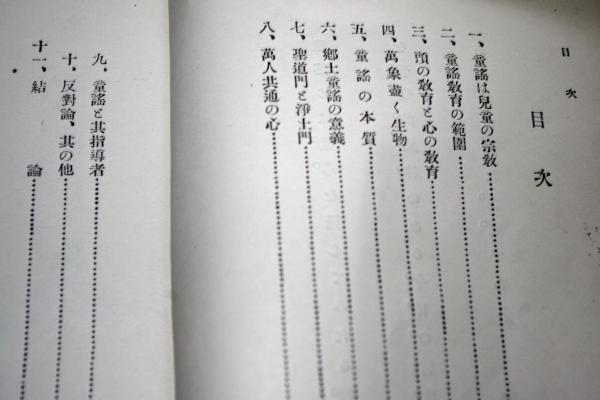 目次
目次
一、童謠は兒童の宗敎
二、童謠敎育の範圍
三、頭の敎育と心の敎育
四、萬象盡く生物
五、童謠の本質
六、鄕土童謠の意義
七、聖道門と淨土門
八、萬人共通の心
九、童謠と其指導者
十、反對論、其の他
十一、結論